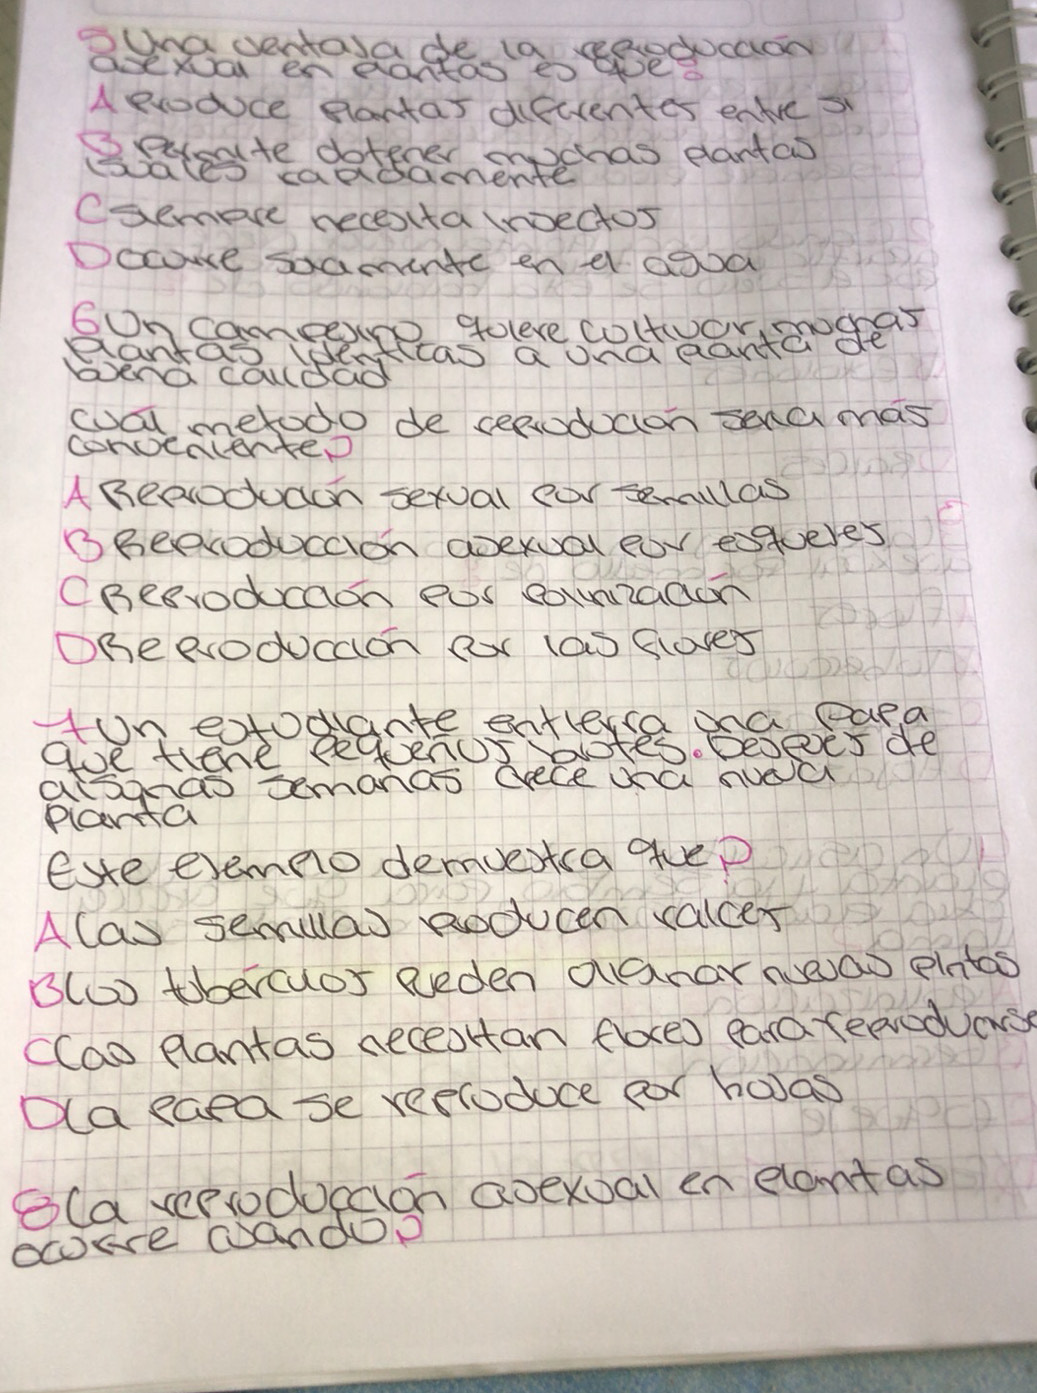 5 Una ventaja de la reproducción
asexual en plantas es que?
A Produce plantas diferentes entre si
B Permite obtener muchas plantas
iguales rapidamente
C siempre necesita insectos
D ocurre solamente en el agua
6 Un campesino quiere cultivar muchas
plantas identicas a una planta de
buena calidad
cual metodo de reproducción seria más
conveniente?
A Reproducción sexual por semillas
B Reproducción asexual por esquejes
C Reproducción por polinización
D Reproducción por las flores
7 Un estudiante entierra una papa
que tiene pequeños brotes. Despues de
algunas semanas crece una nueva
planta
Este ejemplo demuestra que?
A las semillas producen raices
B los tubérculos pueden originar nuevas plntas
C las plantas necesitan flores para reproducirse
D la papa se reproduce por hojas
8 la reproducción asexual en plantas
ocurre cuando?